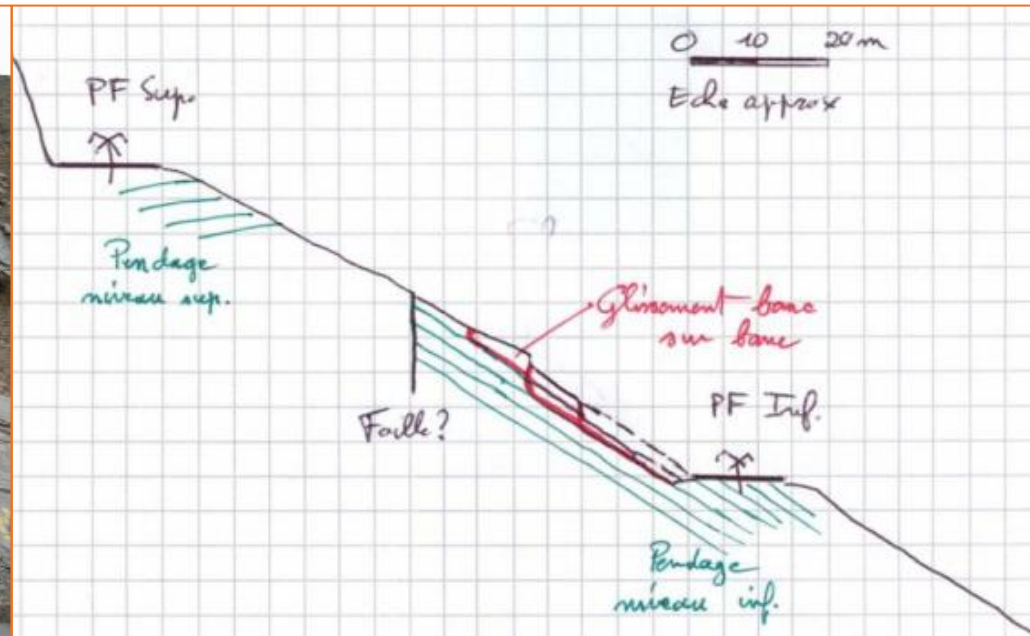 0 10 20 m
Eche approx
PF Sup.
Pendage
niveau sup.
Glissement banc
sur banc
Faille?
PF Inf.
Pendage
niveau inf.